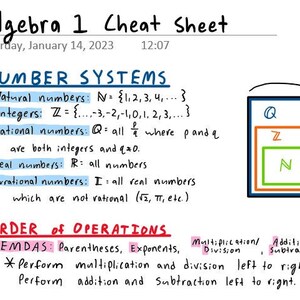 lgebra 1 Cheat Sheet
rday, January 14, 2023 12:07
UMBER SYSTEMS
atural numbers: ℕ = {1, 2, 3, 4, ...}
ntegers: ℤ = {...,-3,-2,-1,0,1,2,3,...
ational numbers: ℚ = all p/q where p and q
are both integers and q≠0.
eal numbers: ℝ = all numbers
rrational numbers: I = all real numbers
which are not rational (√2, π, etc.)
ℚ
ℤ
ℕ
RDER OF OPERATIONS
EMDAS: Parentheses, Exponents, Multiplication/Division, Additi
Subtra
* Perform multiplication and division left to righ
Perform addition and subtraction left to right.